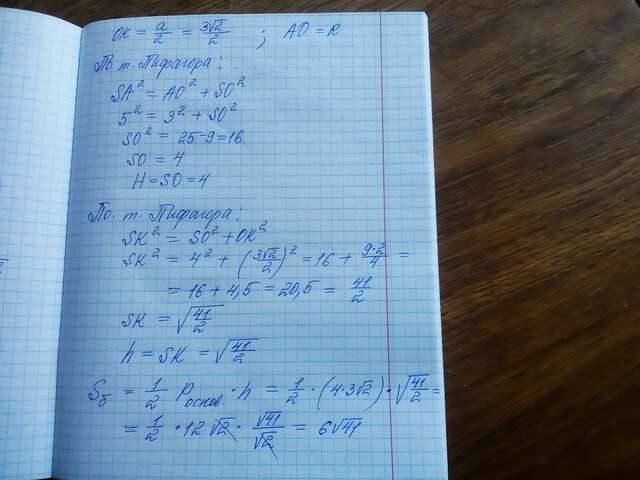 OK = a/2 = 3√2/2 ; AO = R
По т. Пифагора:
SA² = AO² + SO²
5² = 3² + SO²
SO² = 25 - 9 = 16
SO = 4
H = SO = 4
По. т. Пифагора:
SK² = SO² + OK²
SK² = 4² + (3√2/2)² = 16 + 9·2/4 =
= 16 + 4,5 = 20,5 = 41/2
SK = √(41/2)
h = SK = √(41/2)
Sб = 1/2 Pоснов. · h = 1/2 · (4·3√2) · √(41/2) =
= 1/2 · 12√2 · √41/√2 = 6√41